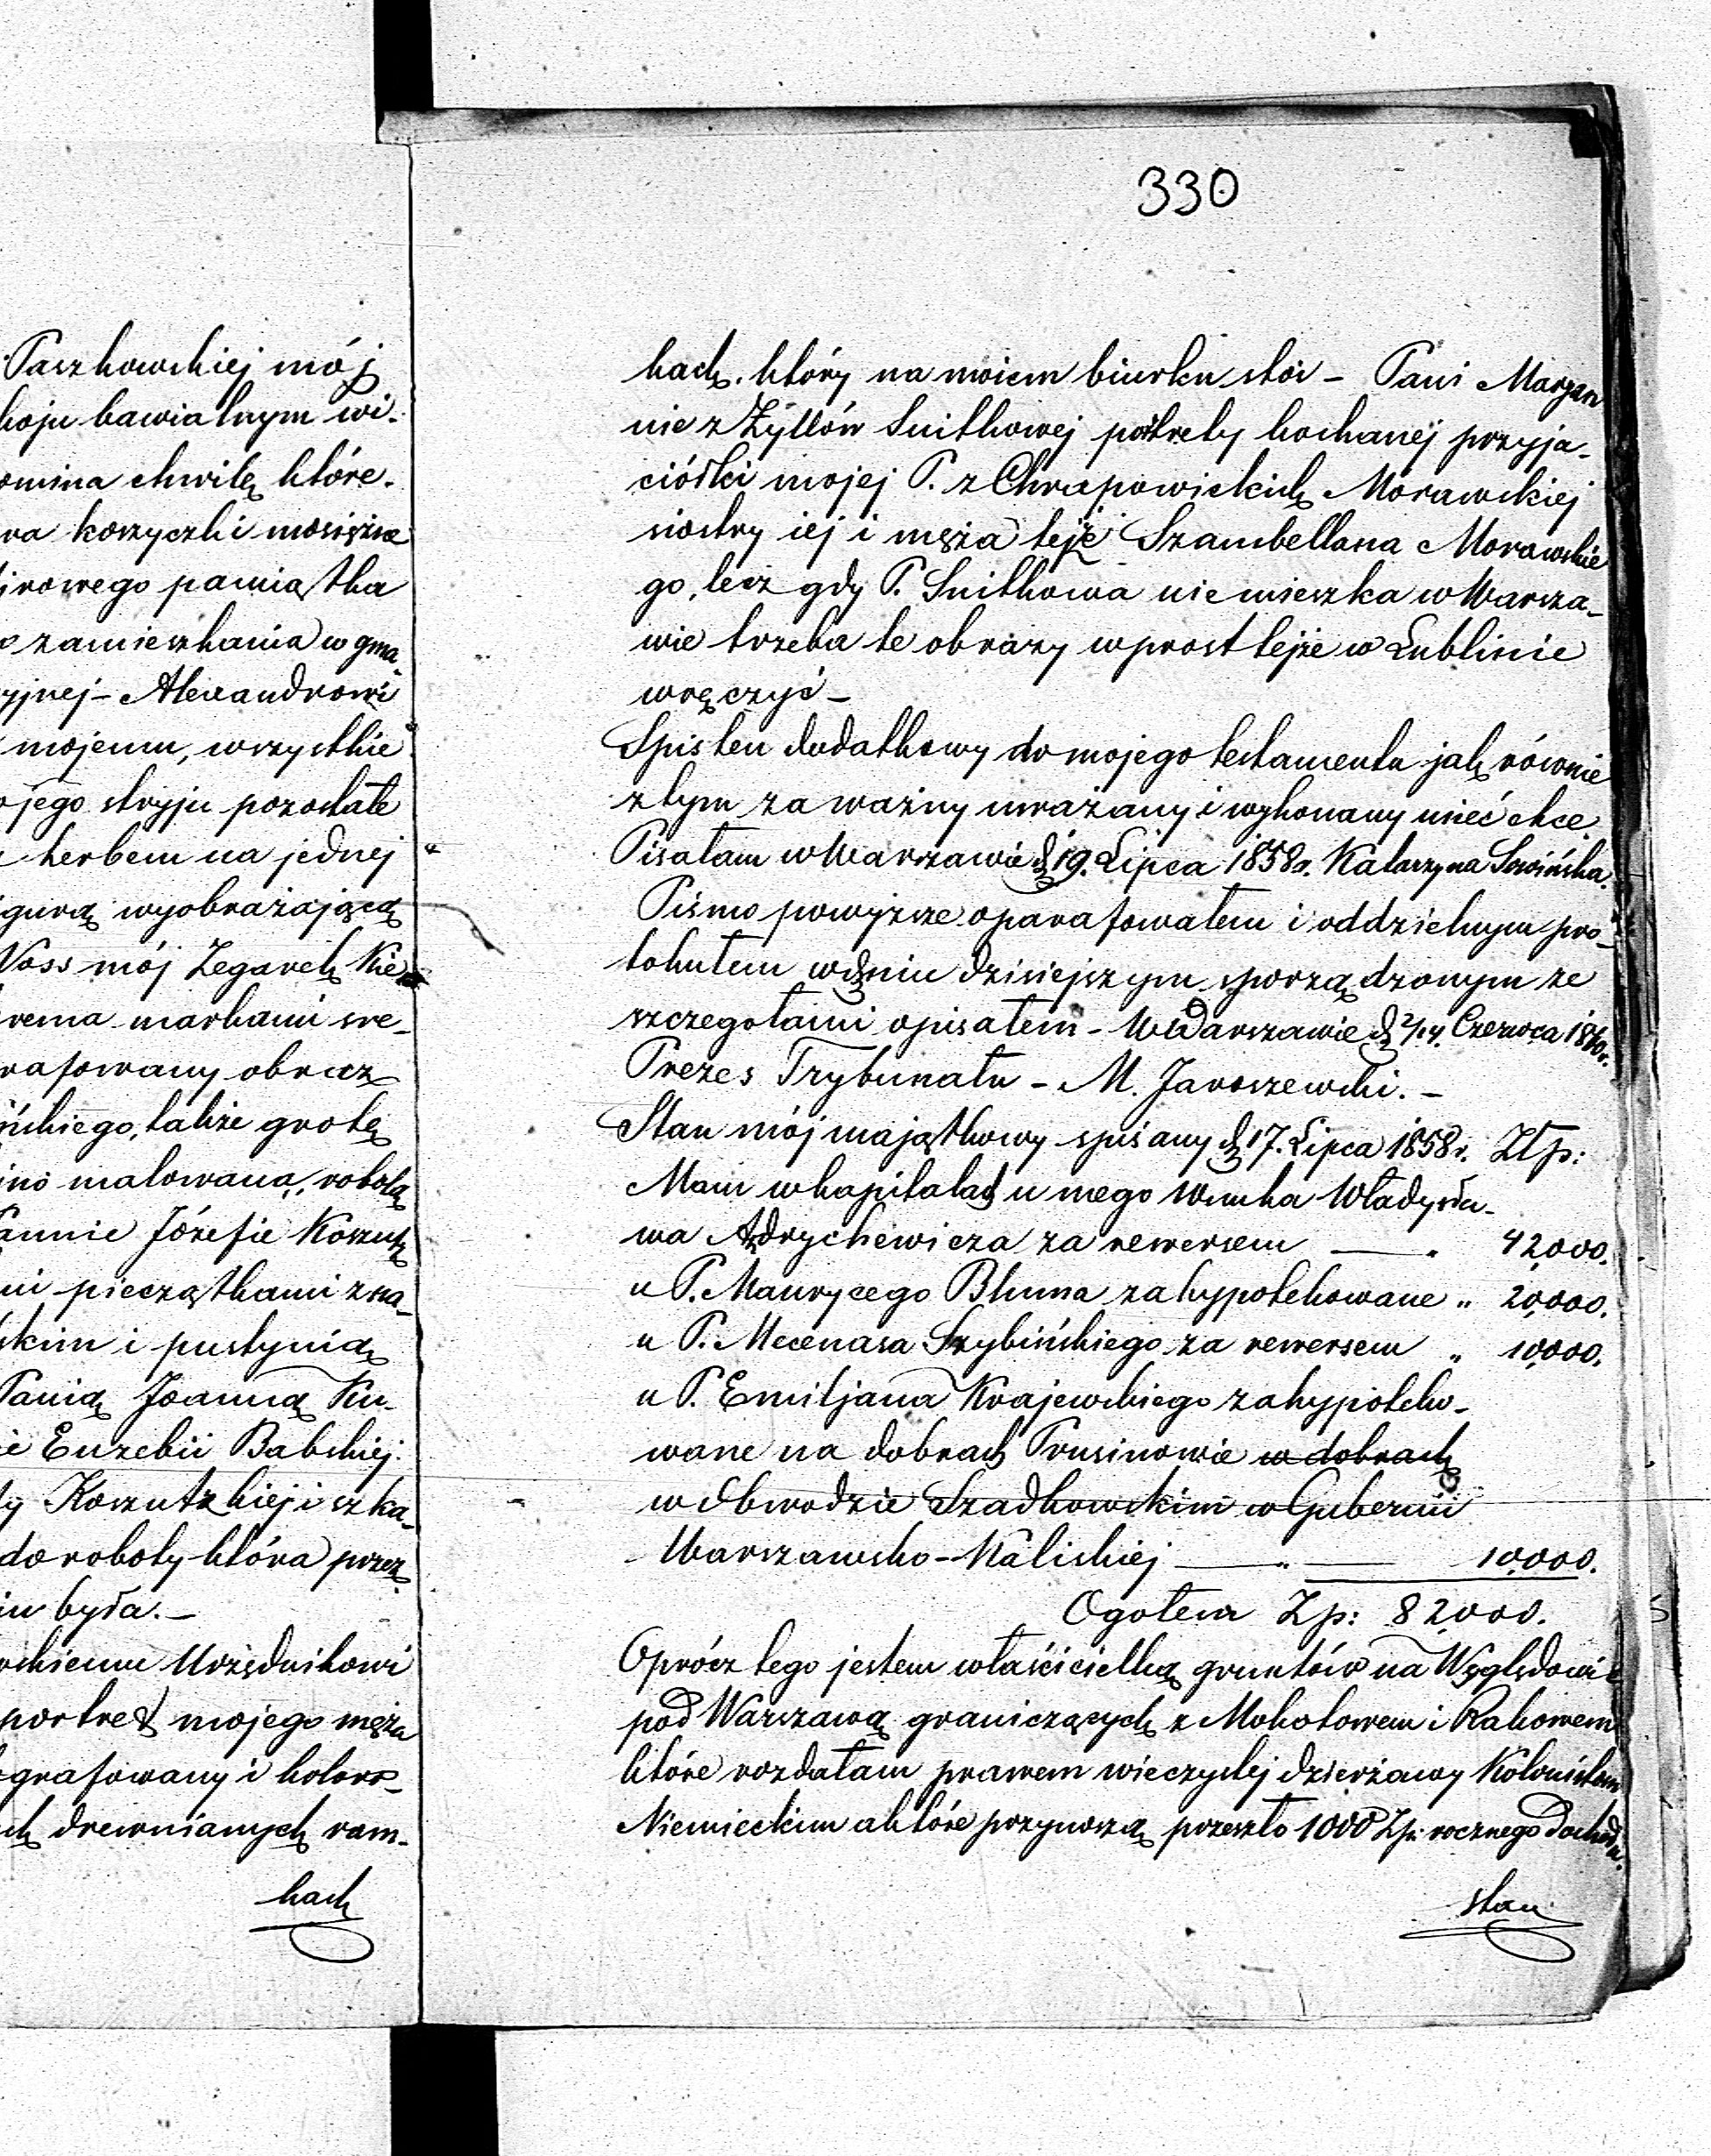 Paszkowskiej mój
koju bawialnym wi-
omina chwilę które.
ra koszyczki mosiężne
irowego pamiątka
o zamieszkania w gma
yjnej - Alexandrowi
mojemu, wszystkie
ojego stryju pozostałe
z herbem na jednej
igurą wyobrażającą
Voss mój Zegarek Kie
rema markami sre-
rafowany obraz
ińskiego, także grotę
ino malowaną, robotą
annie Józefie Koszuts
mi pieczątkami zna-
skim i pustynią
Panią Joanną Ku-
ie Euzebii Babskiej.
ty Koszutzkiej i szka-
do roboty która przez
iu była. -
wskiemu Urzędnikowi
portret mojego męża
grafowany i koloro-
ch drewnianych ram-
kach
330
kach. który na moiem biurku stoi - Pani Maryan
nie z Żyllów Snitkowej portrety kochanej przyja-
ciółki mojej P. z Chrapowickich Morawskiej
siostry iej i męża tejże Szambellana Morawskie
go, lecz gdy P. Snitkowa niemieszka w Warsza-
wie trzeba te obrazy wprost tejże w Lublinie
wręczyć -
Spis ten dodatkowy do mojego testamentu jak równie
z tym za ważny uważany i wykonany mieć chcę
Pisałam w Warszawie d. 19. Lipca 1858 r. Katarzyna Sowińska.
Pismo powyższe oparafowałem i oddzielnym pro-
tokułem w dniu dzisiejszym sporządzonym ze
szczegółami opisałem - w Warszawie d. 2/14. Czerwca 1860 r.
Prezes Trybunału - M. Jaroszewski. -
Stan mój majątkowy spisany d. 17. Lipca 1858 r. Złp:
Mam w kapitałach u mego Wnuka Władysła-
wa Andrychiewicza za rewersem — „ 42,000.
u P. Maurycego Bluma zahypotekowane „ 20,000.
u P. Mecenasa Szybińskiego za rewersem „ 10,000.
u P. Emiljana Krajewskiego zahypoteko-
wane na dobrach Prusinowie w dobrach
w Obwodzie Szadkowskim w Gubernii
Warszawsko-Kaliskiej — „ — 10,000.
Ogołem Zp: 82,000.
Oprócz tego jestem właścicielką gruntów na Wyględowie
pod Warszawą graniczących z Mokotowem i Rakowem
które rozdałam prawem wieczystej dzierżawy Kolonistom
Niemieckim a które przynoszą przeszło 1000 Zp: rocznego dochodu.
stan